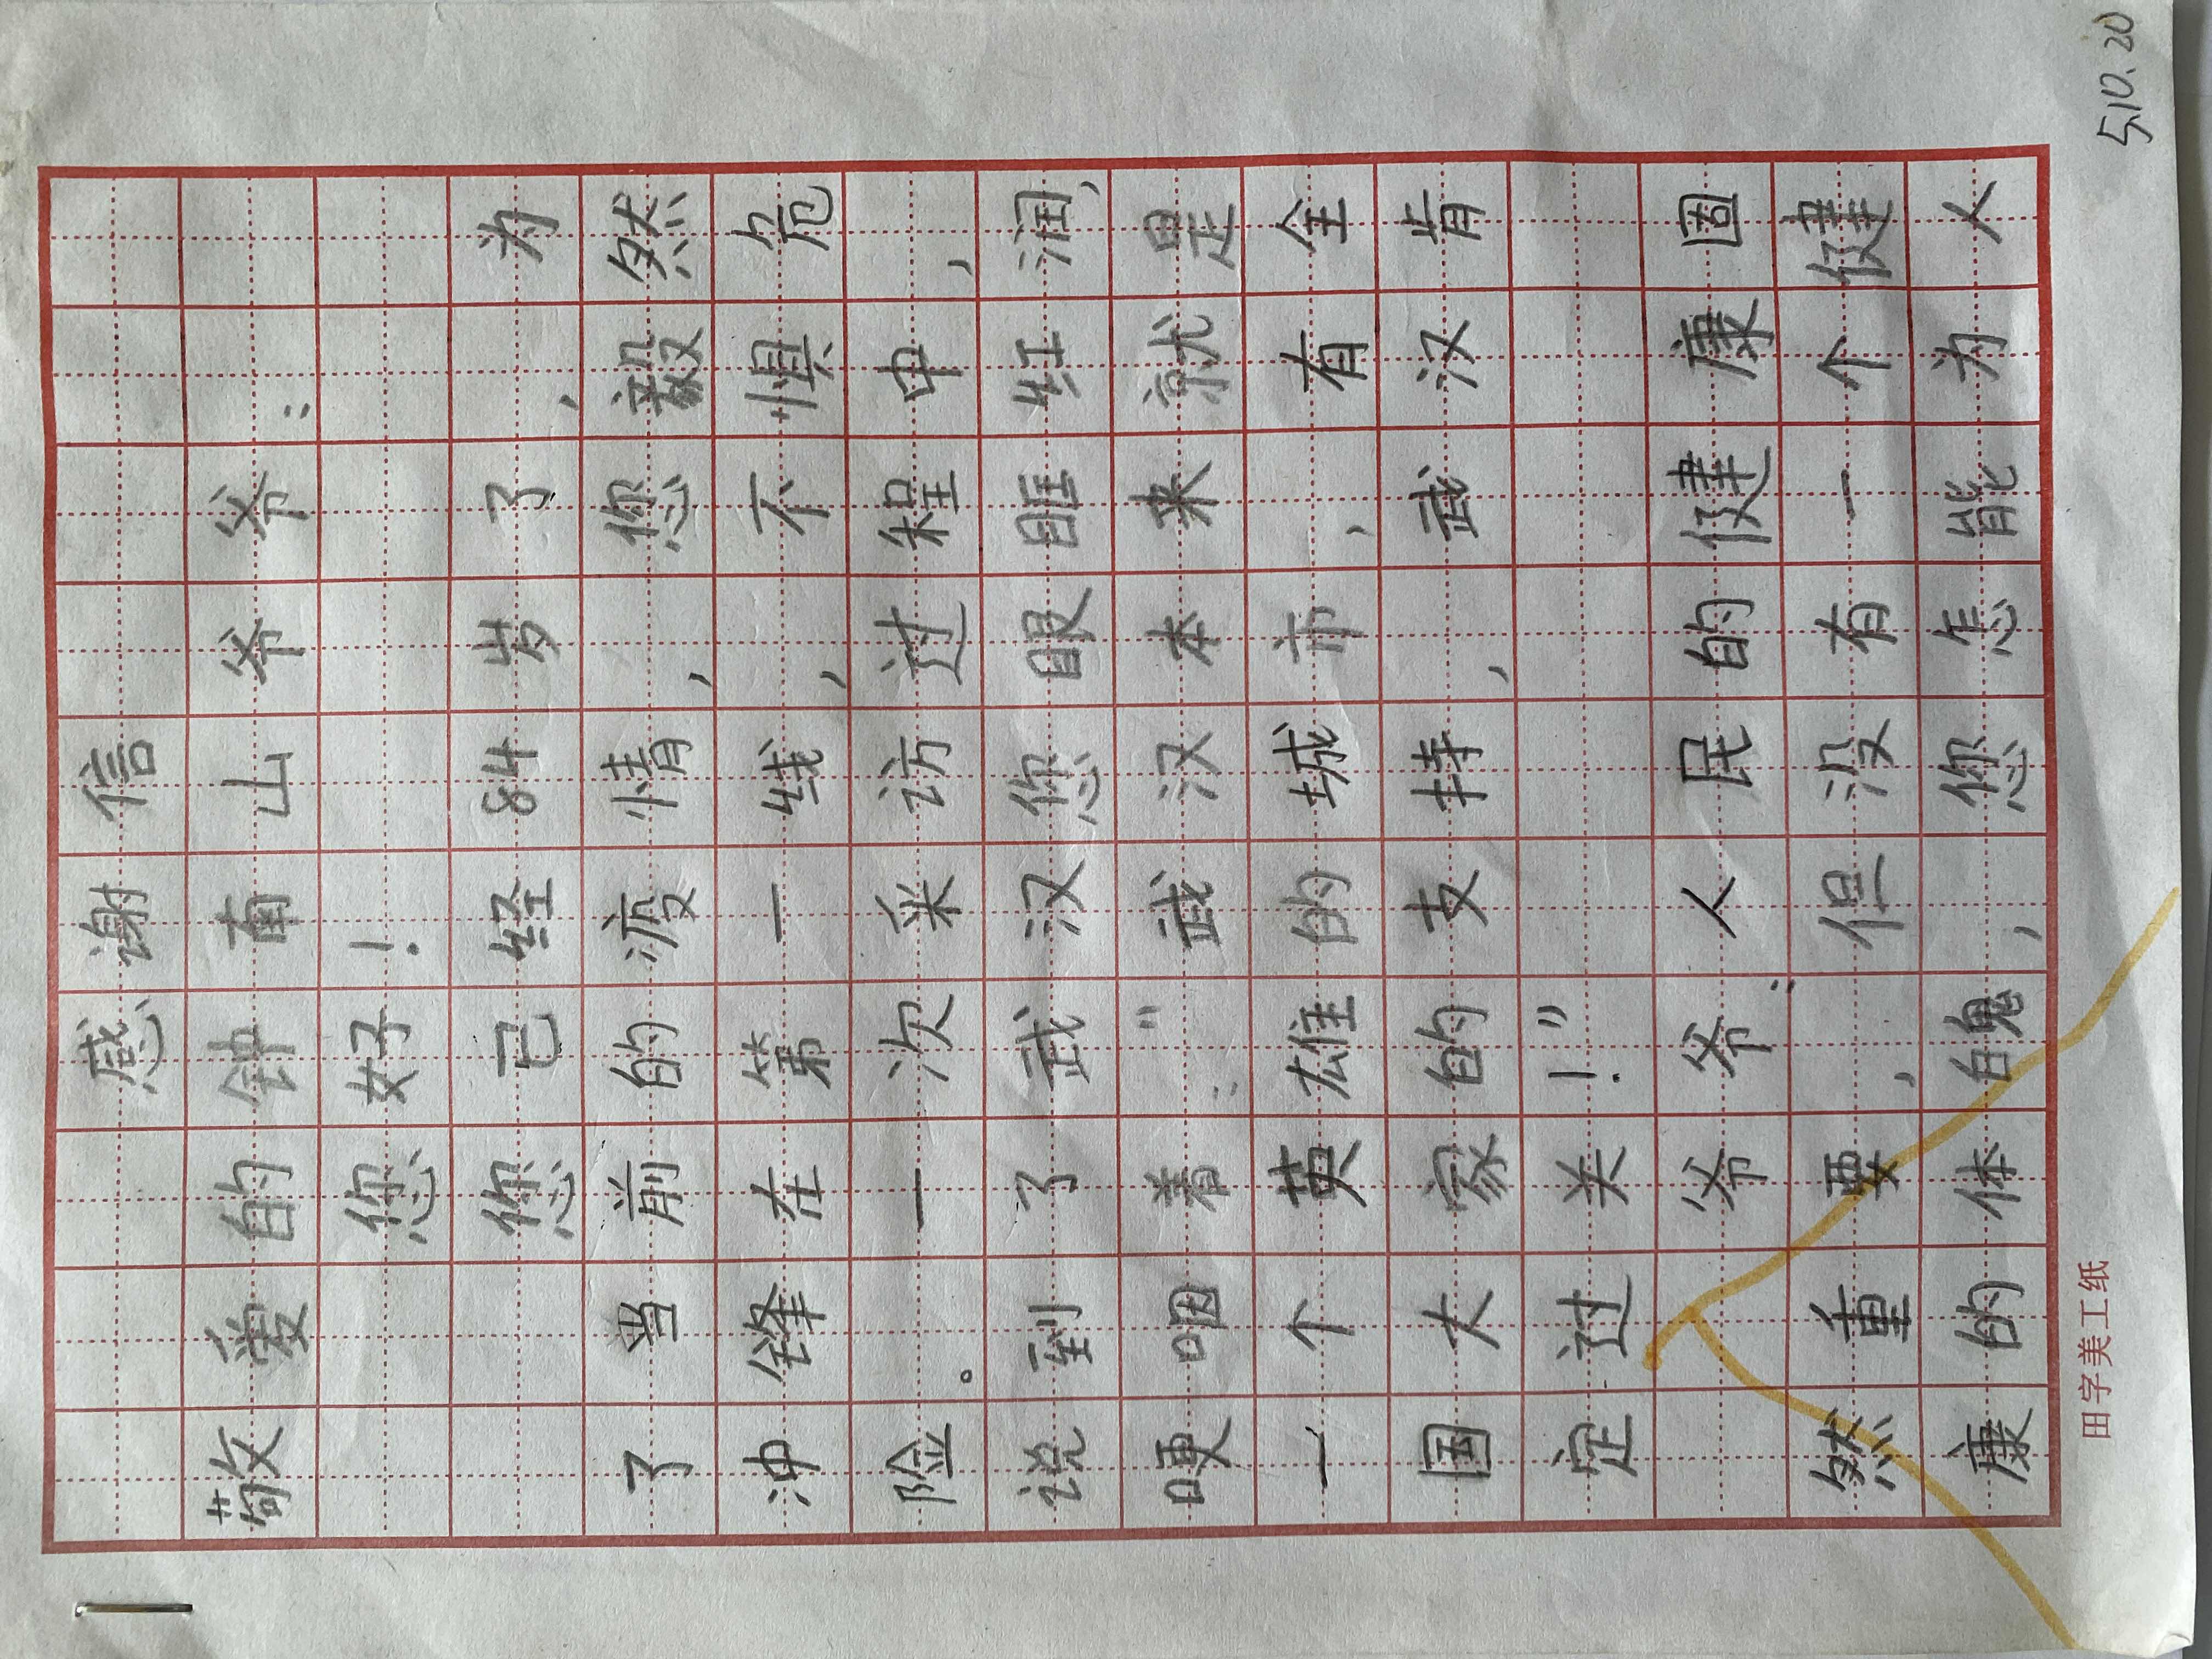 感谢信
敬爱的钟南山爷爷:
您好!
您已经84岁了,为
了当前的疫情,您毅然
冲锋在第一线,不惧危
险。一次采访过程中,
说到了武汉您眼眶红润,
哽咽着:“武汉本来就是
一个英雄的城市,有全
国大家的支持,武汉肯
定过关!”
爷爷:人民的健康固
然重要,但没有一个健
康的体魄,您怎能为人
田字美工纸
5,10.20